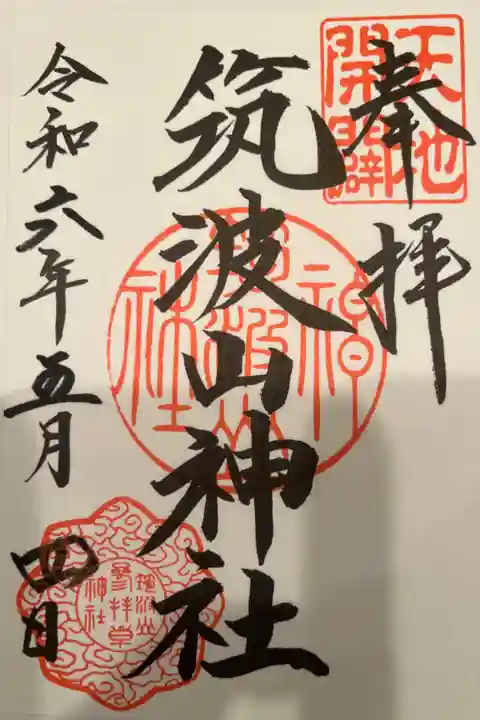 奉拝
天地
開闢
筑波山神社
筑波山
神社
令和六年五月
四日
筑波山
参拝章
神社